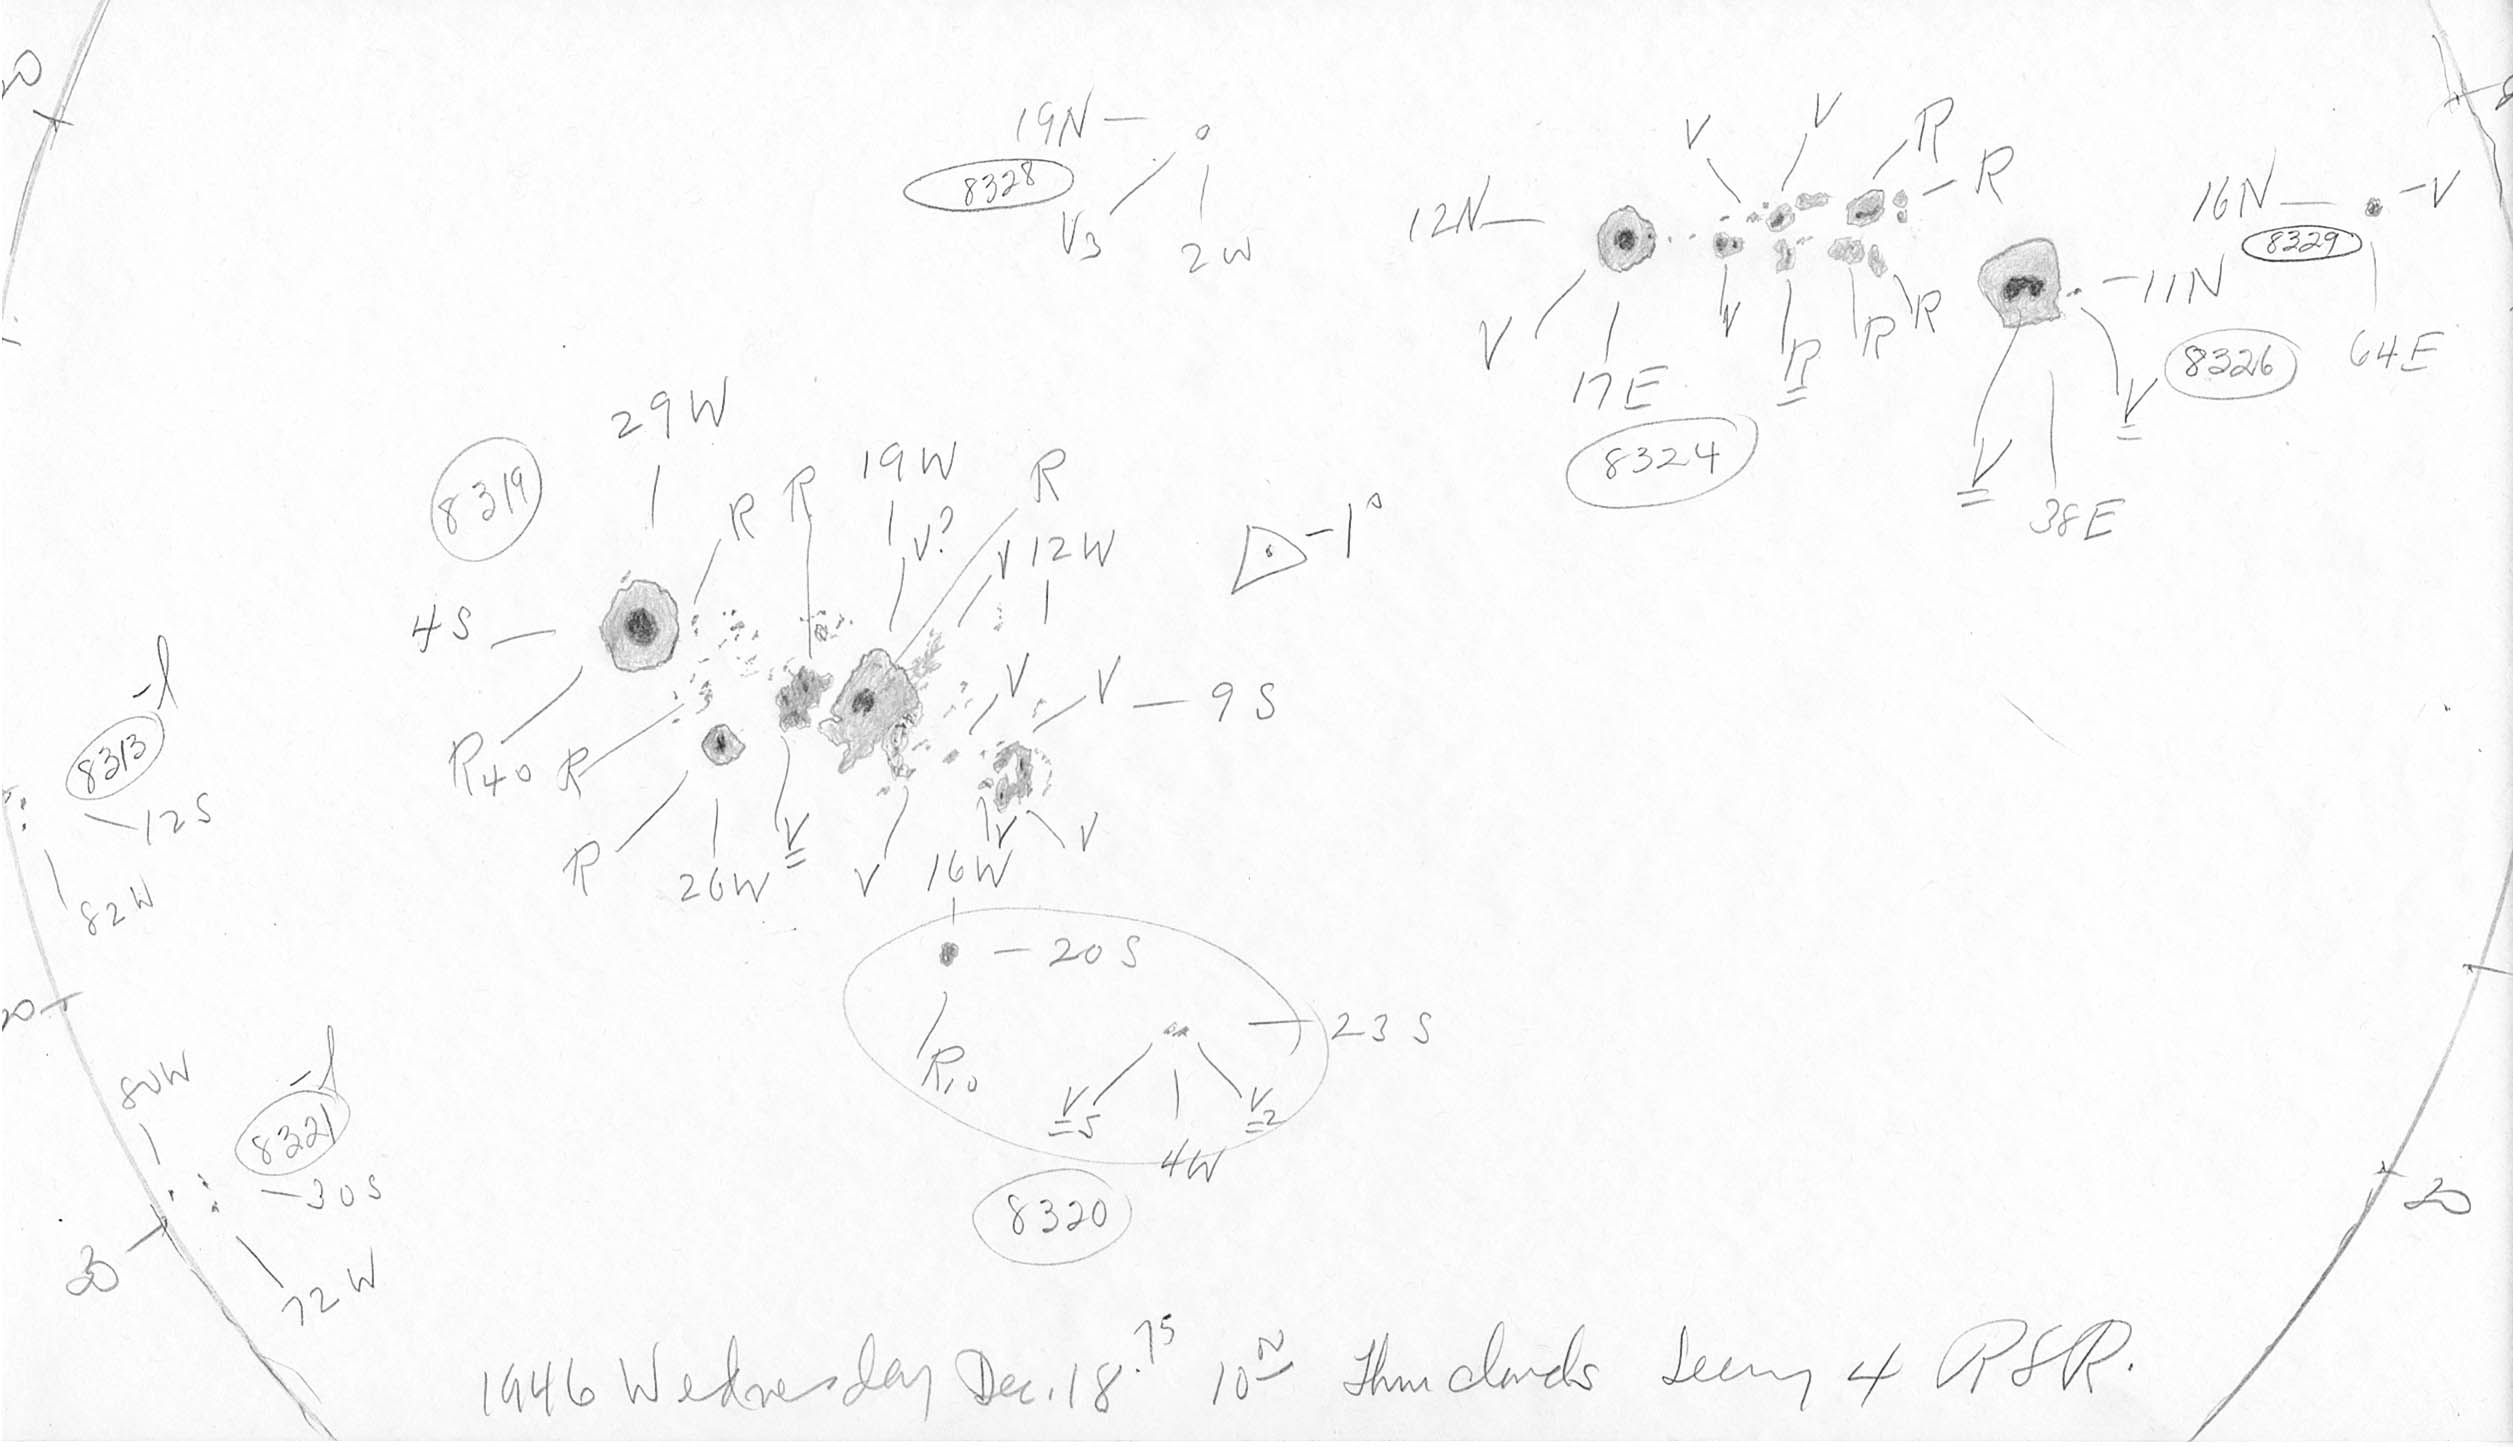 19N
8328
V3
2W
V
V
R
R
12N
V
17E
V
R
R
R
8324
16N
V
8329
64E
11N
8326
V
V
38E
29W
8319
R
R
19W
V?
R
V
12W
-1°
4S
R40
R
R
26W
V
V
V
V
9S
V
V
16W
-l
8313
12S
82W
20S
R10
23S
V5
4W
V2
8320
80W
-l
8321
30S
72W
30
20
1946 Wednesday Dec. 18.75 10N Thru clouds Seeing 4 RSR.